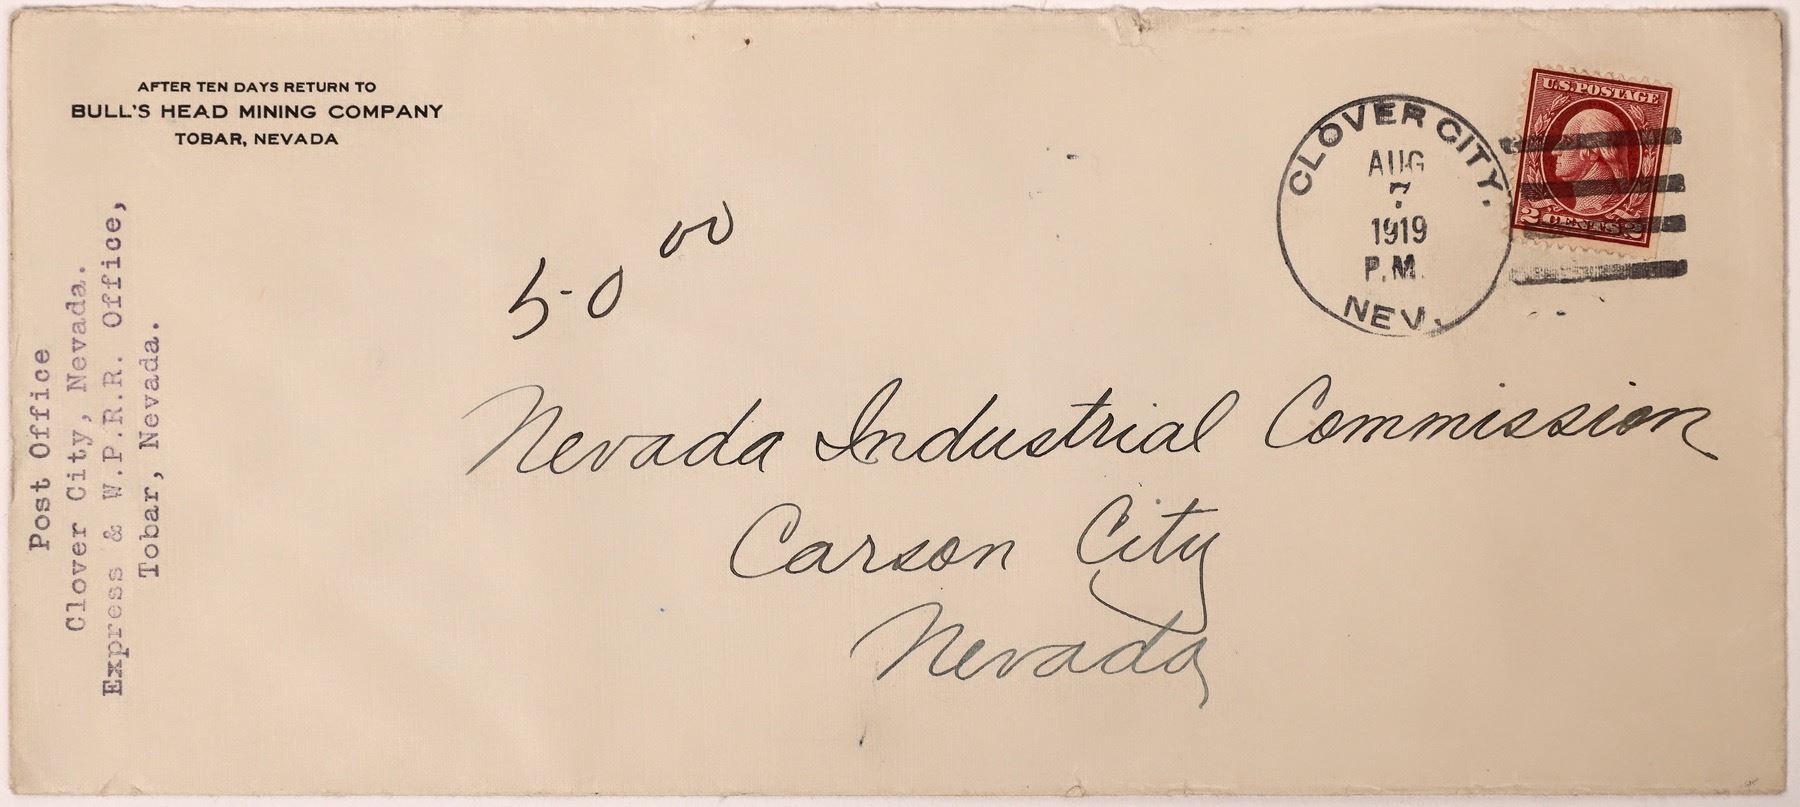 AFTER TEN DAYS RETURN TO
BULL'S HEAD MINING COMPANY
TOBAR, NEVADA
Post Office
Clover City, Nevada.
Express & W.P.R.R. Office,
Tobar, Nevada.
CLOVER CITY,
AUG
7
1919
P.M.
NEV.
U.S. POSTAGE
2 CENTS 2
50 00
Nevada Industrial Commission
Carson City
Nevada